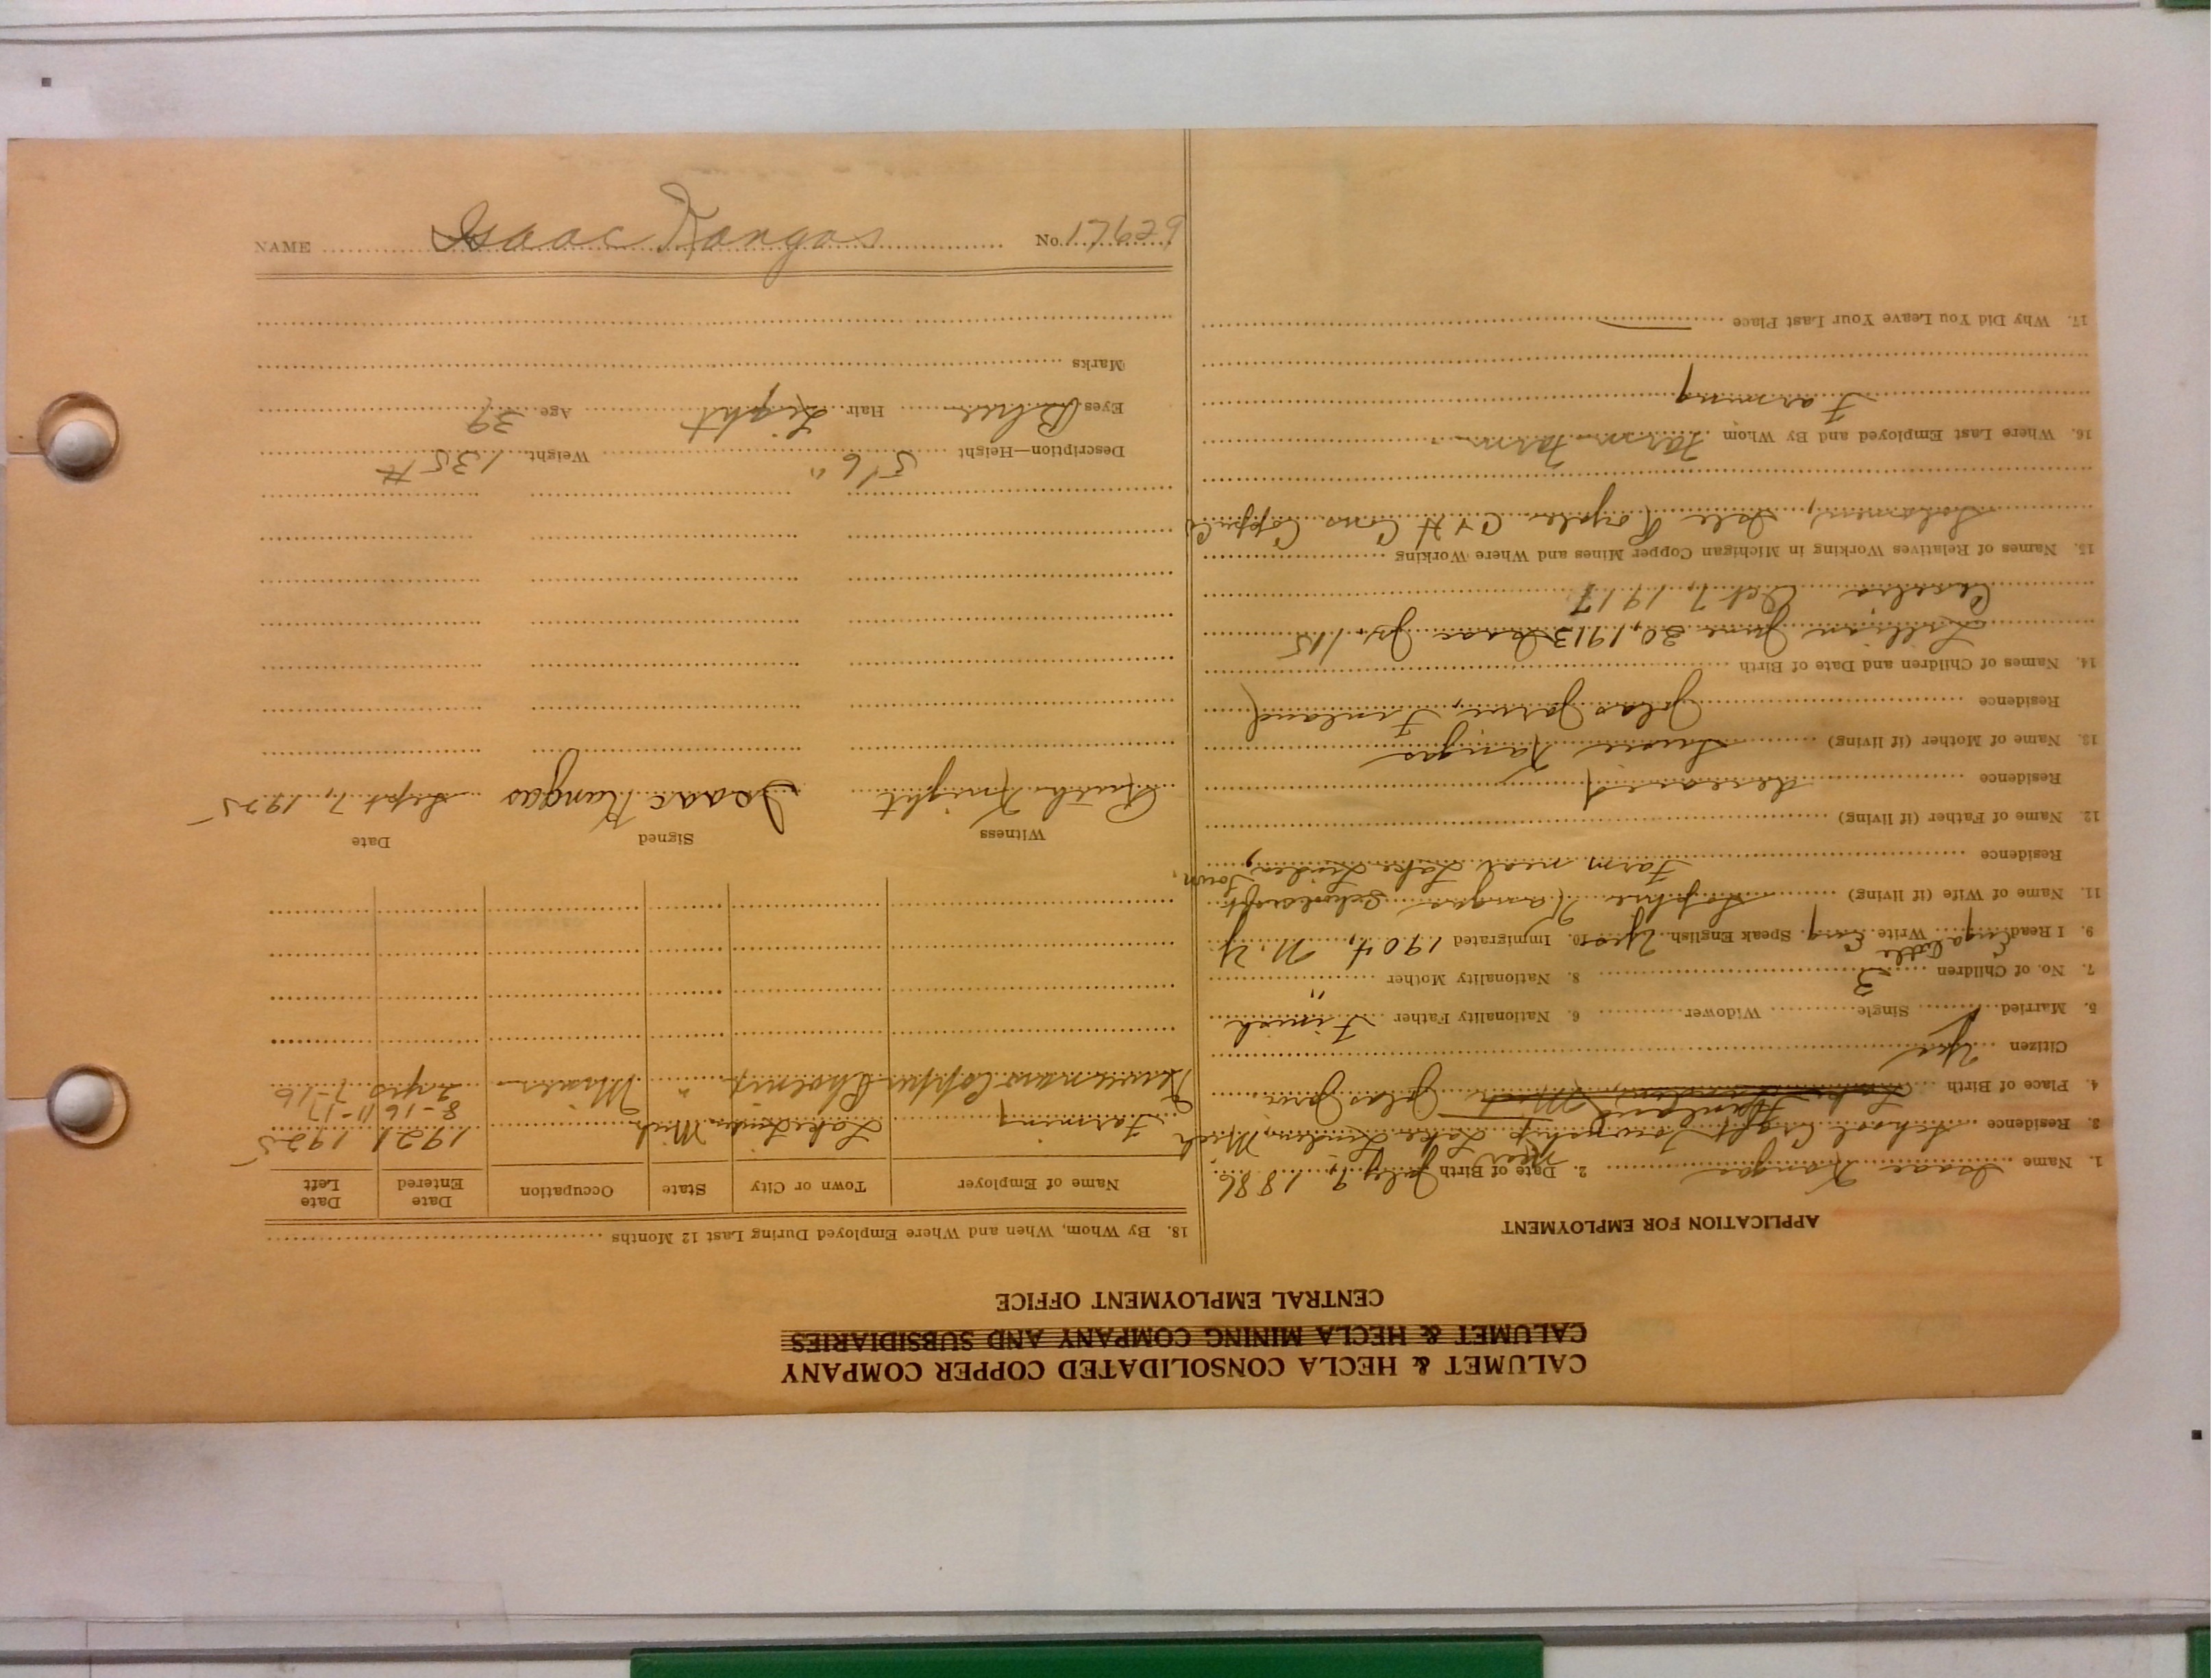 CALUMET & HECLA CONSOLIDATED COPPER COMPANY
CALUMET & HECLA MINING COMPANY AND SUBSIDIARIES
CENTRAL EMPLOYMENT OFFICE
APPLICATION FOR EMPLOYMENT
1. Name Isaac Kangas 2. Date of Birth July 9, 1886
3. Residence School Craft Township near Lake Linden, Mich
4. Place of Birth Jalas Jarvi
Citizen Yes
5. Married Single Widower 6. Nationality Father Finnish
7. No. of Children 3 8. Nationality Mother "
9. I Read Eng a little Write Eng Speak English Yes 10. Immigrated 1904, N.Y
11. Name of Wife (if living) Sophie Kangas Schoolcraft Town,
Residence Farm near Lake Linden,
12. Name of Father (if living)
Residence deceased
13. Name of Mother (if living) Kangas
Residence Jalas Jarvi, Finland
14. Names of Children and Date of Birth
Lillian June 30, 1913 Isaac Jr, 1/15
Oct 7, 1917
15. Names of Relatives Working in Michigan Copper Mines and Where Working
Solomon, Isle Royale C & H Cons Copper Co
16. Where Last Employed and By Whom Farm Farm
Farming
17. Why Did You Leave Your Last Place
18. By Whom, When and Where Employed During Last 12 Months
Name of Employer Town or City State Occupation Date Entered Date Left
Farming Lake Linden Mich 1921 1925
8-16 11-17
Copper Phoenix " Miner 2 yrs 7-16
Witness Signed Date
Ruth Knight Isaac Kangas Sept 7, 1925
Description—Height 5' 6" Weight 135 #
Eyes Blue Hair Light Age 39
Marks
NAME Isaac Kangas No. 17629